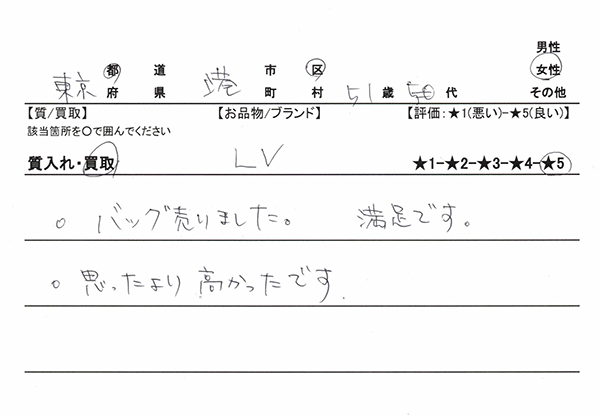 男性
都 道 市 区 女性
東京 府 県 港 町 村 51 歳 50 代 その他
【質/買取】 【お品物/ブランド】 【評価:★1(悪い)-★5(良い)】
該当箇所を〇で囲んでください
質入れ・買取 LV ★1-★2-★3-★4-★5
○ バッグ売りました。 満足です。
○ 思ったより高かったです.